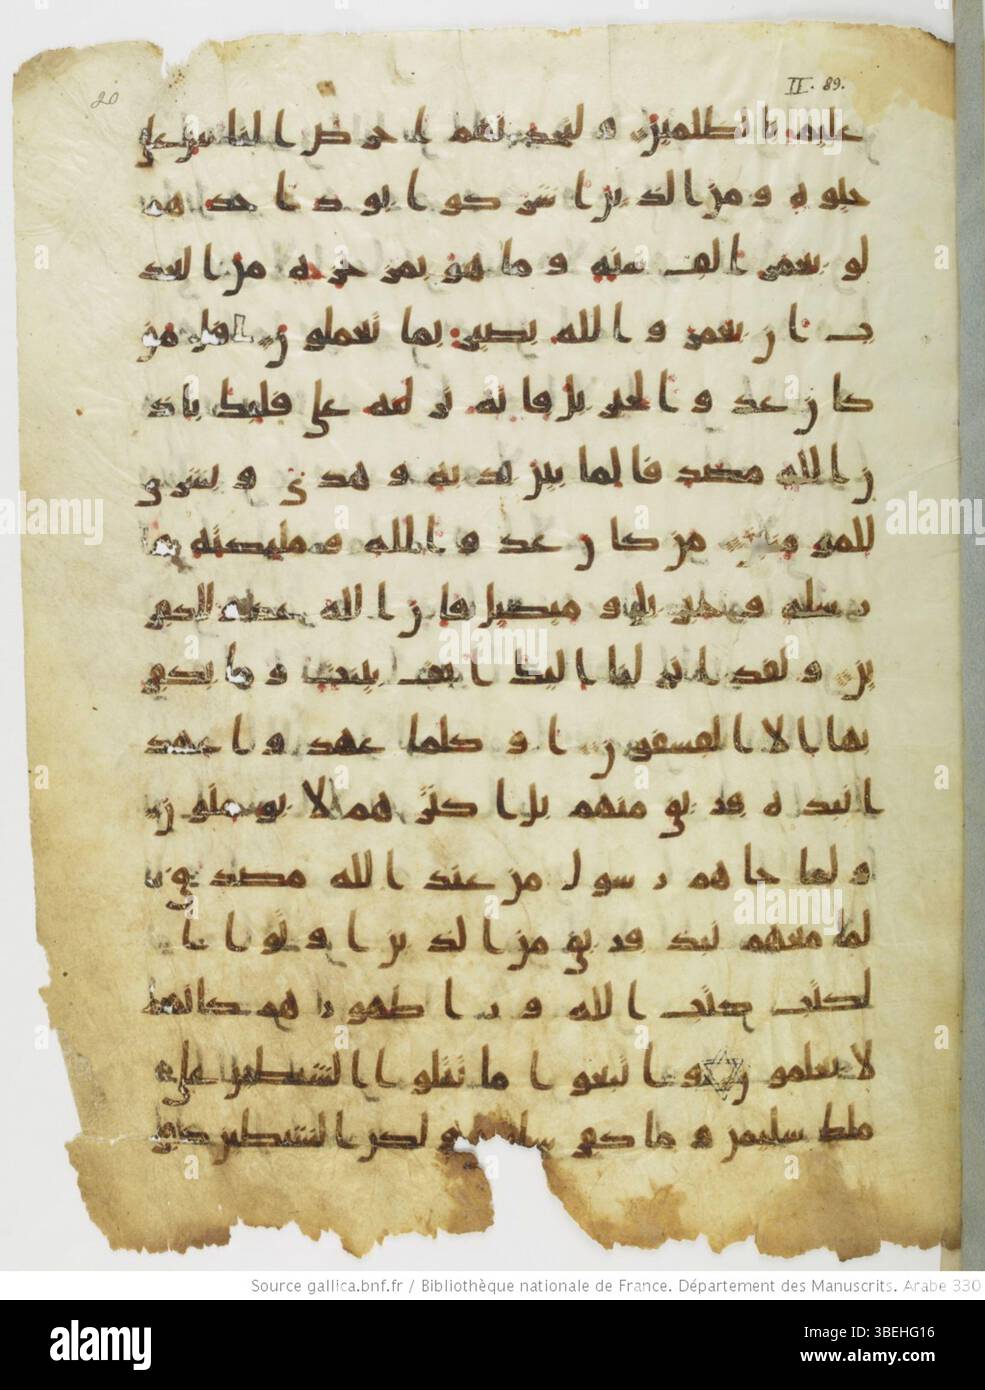 20
II. 89.
عليم بالظلمين ولتجدنهم احرص الناس على
حيوة ومن الذين اشركوا يود احدهم
لو يعمر الف سنة وما هو بمزحزحه من العذ
اب ان يعمر والله بصير بما يعملون قل من
كان عدوا لجبريل فانه نزله على قلبك باذ
ن الله مصدقا لما بين يديه وهدى وبشرى
للمومنين من كان عدوا لله وملئكته و
رسله وجبريل وميكيل فان الله عدو للكفر
ين ولقد انزلنا اليك ايت بينت وما يكفر
بها الا الفسقون اوكلما عهدوا عهد
ا نبذه فريق منهم بل اكثرهم لا يومنون
ولما جاهم رسول من عند الله مصدق
لما معهم نبذ فريق من الذين اوتوا ا
لكتب كتب الله ورا ظهورهم كانهم
لا يعلمون واتبعوا ما تتلوا الشيطين على
ملك سليمن وما كفر سليمن ولكن الشيطين كفر
Source gallica.bnf.fr / Bibliothèque nationale de France. Département des Manuscrits. Arabe 330
alamy
Image ID: 3BEHG16
www.alamy.com